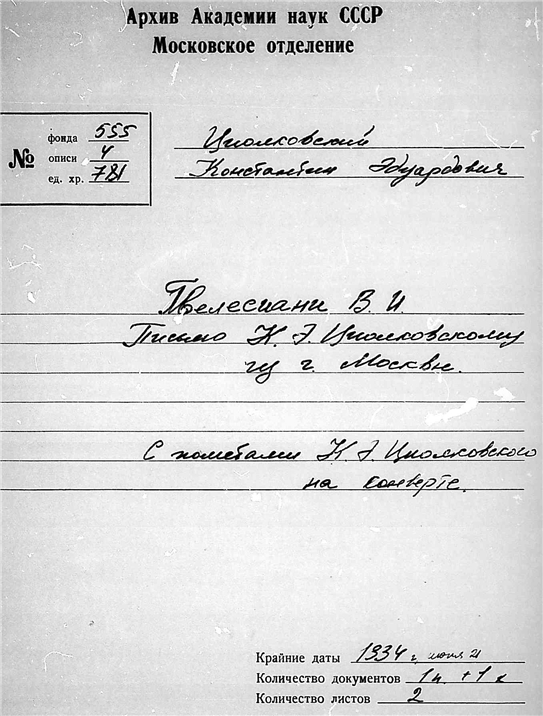 Архив Академии наук СССР
Московское отделение
№
фонда 555
описи 4
ед. хр. 781
Циолковский
Константин Эдуардович
Гвелесиани В. И.
Письмо К. Э. Циолковскому
из г. Москвы.
С пометами К. Э. Циолковского
на конверте.
Крайние даты 1934 г. 21
Количество документов 1 п. + 1 к
Количество листов 2